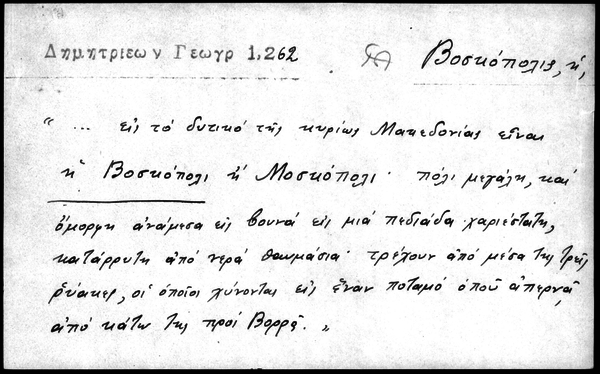 Δημητριεων Γεωγρ 1,262
Βοσκόπολις, ἡ,
“ ... εις τὸ δυτικὸ τῆς κυρίως Μακεδονίας εἶναι
ἡ Βοσκόπολι ἢ Μοσκόπολι· πόλι μεγάλη, καὶ
ὄμορφη ἀνάμεσα εἰς βουνὰ εἰς μιὰ πεδιάδα χαριέστατη,
κατάρρυτη ἀπὸ νερὰ θαυμάσια· τρέχουν ἀπὸ μέσα της τρεῖς
ῥύακες, οἱ ὁποῖοι χύνονται εἰς ἕναν ποταμὸ ὁποῦ ἀπερνᾷ
ἀπὸ κάτω της πρὸς Βορρᾶ. „